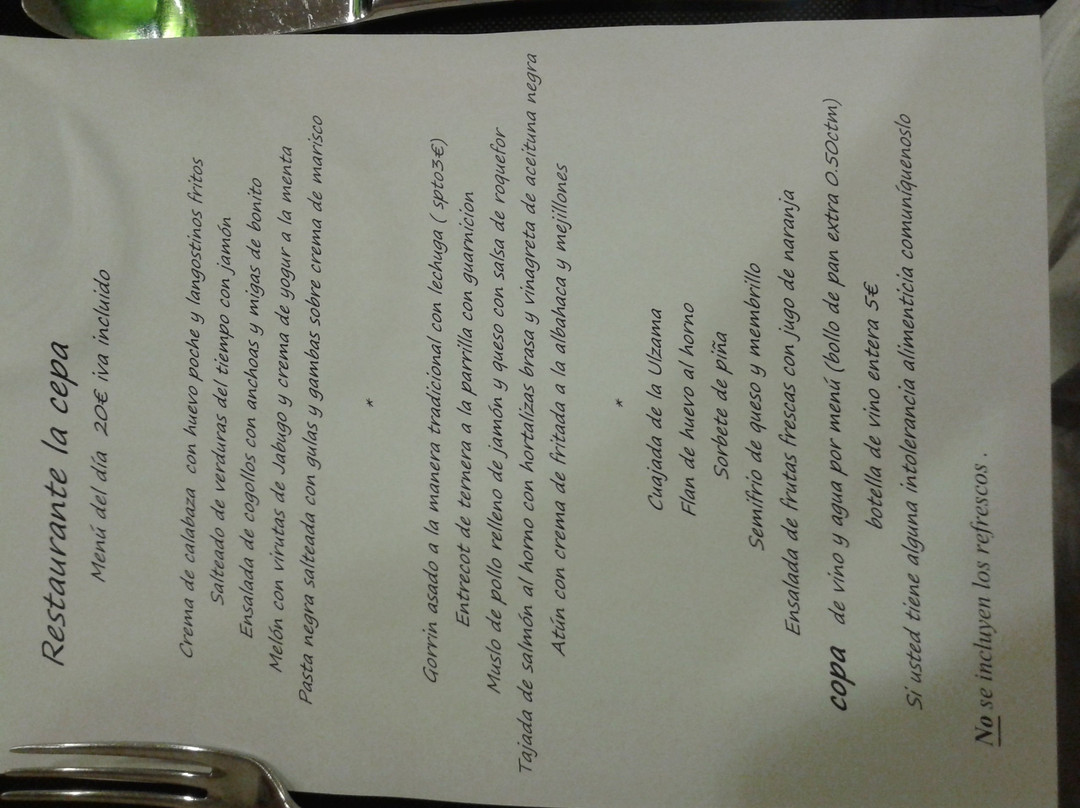 Restaurante la cepa
Menú del día 20€ iva incluido
Crema de calabaza con huevo poche y langostinos fritos
Salteado de verduras del tiempo con jamón
Ensalada de cogollos con anchoas y migas de bonito
Melón con virutas de Jabugo y crema de yogur a la menta
Pasta negra salteada con gulas y gambas sobre crema de marisco
*
Gorrin asado a la manera tradicional con lechuga ( spto3€)
Entrecot de ternera a la parrilla con guarnicion
Muslo de pollo relleno de jamón y queso con salsa de roquefor
Tajada de salmón al horno con hortalizas brasa y vinagreta de aceituna negra
Atún con crema de fritada a la albahaca y mejillones
*
Cuajada de la Ulzama
Flan de huevo al horno
Sorbete de piña
Semifrio de queso y membrillo
Ensalada de frutas frescas con jugo de naranja
copa de vino y agua por menú (bollo de pan extra 0.50ctm)
botella de vino entera 5€
Si usted tiene alguna intolerancia alimenticia comuníquenoslo
No se incluyen los refrescos .